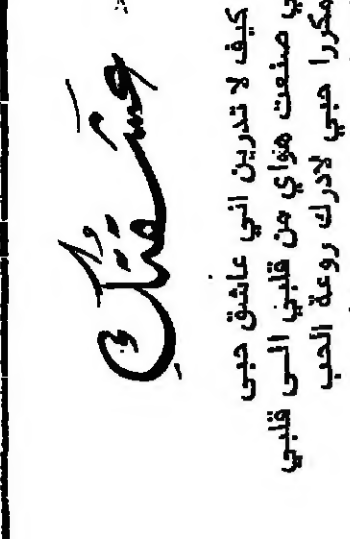 عشقتك
كيف لا تدرين اني عاشق حبى
صنعت هواي من قلبي الى قلبي
مكررا حبي لادرك روعة الحب